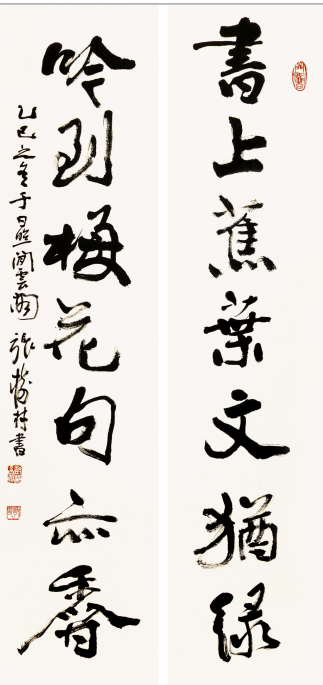 書上蕉葉文猶绿
吟到梅花句亦香
乙巳之冬于日照闻雲阁 張樹村書